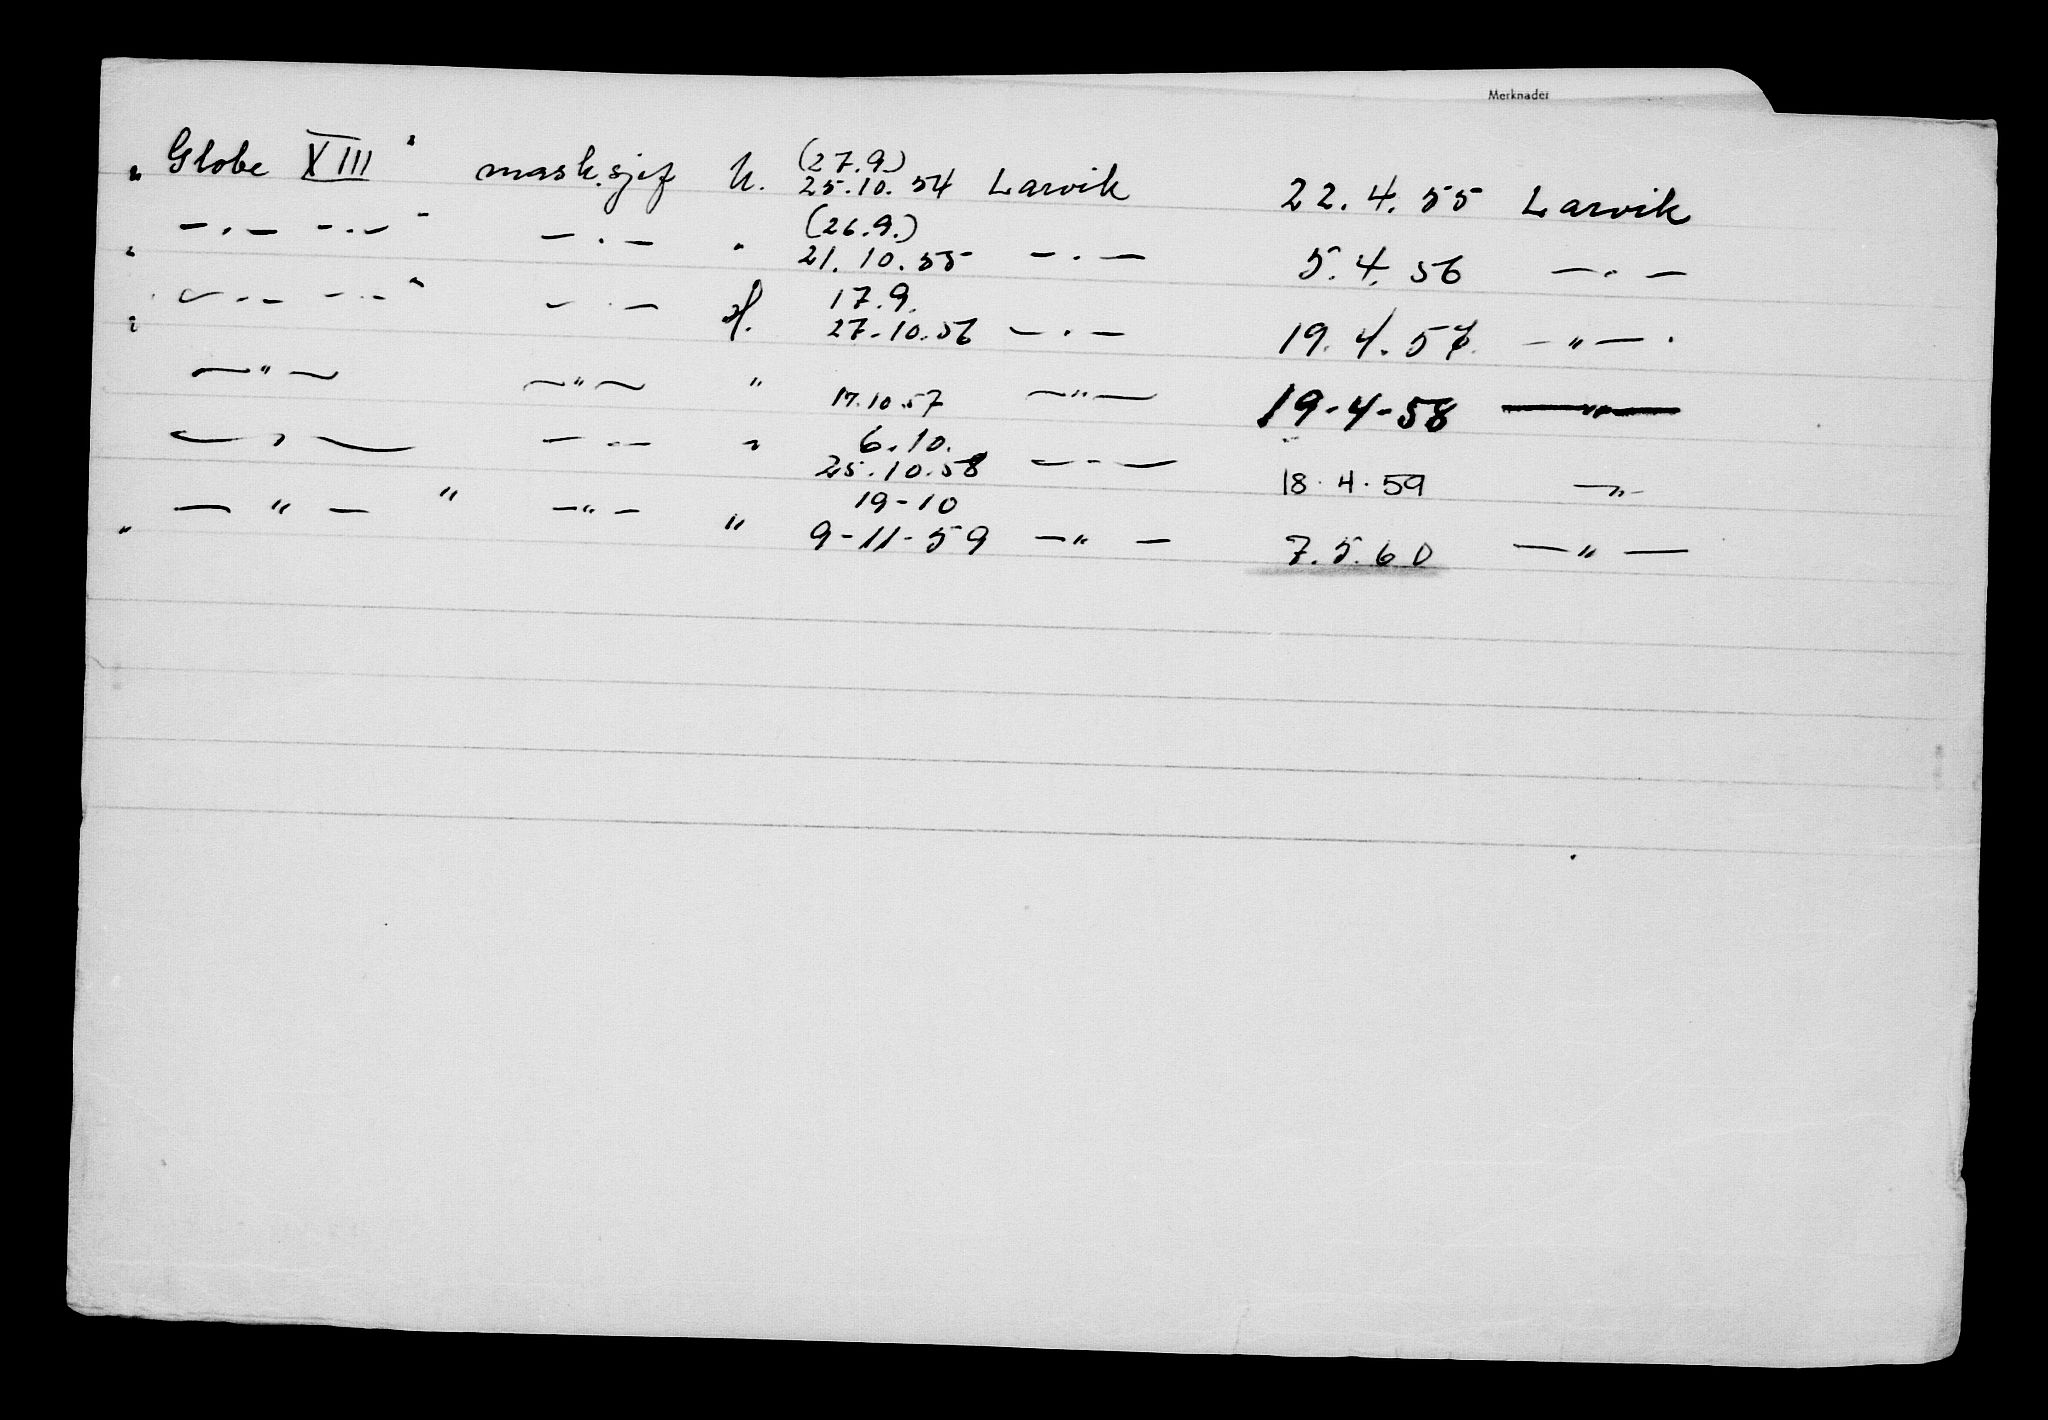 Merknader
„Globe XIII" mask.sjef h. (27.9.) 25.10.54 Larvik 22.4.55 Larvik
„ — . — — . — " — . — " (26.9.) 21.10.55 — . — 5.4.56 — . —
„ — . — — . — " — . — 17.9. 27.10.56 — . — 19.4.57. — " — .
— " — — " — " 17.10.57 — " — 19-4-58 — " —
— " — — " — " 6.10. 25.10.58 — " — 18.4.59 — " —
„ — " — " — " — " 19-10 9-11-59 — " — 7.5.60 — " —